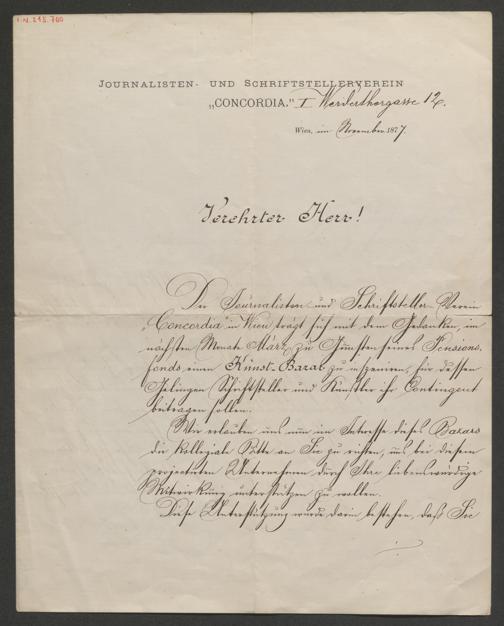 I.N. 218.700
JOURNALISTEN- UND SCHRIFTSTELLERVEREIN
„CONCORDIA.“ I Werderthorgasse 12.
Wien, im November 1877.
Verehrter Herr!
Der Journalisten- und Schriftsteller-Verein
„Concordia“ in Wien trägt sich mit dem Gedanken, im
nächsten Monat März, zu Gunsten seines Pensions-
fonds, einen Kunst-Bazar zu insceniren, für dessen
Gelingen Schriftsteller und Künstler ihr Contingent
beitragen sollen.
Wir erlauben uns nun im Interesse dieses Bazars
die kollegiale Bitte an Sie zu richten, uns bei diesem
projectirten Unternehmen durch Ihre liebenswürdige
Mitwirkung unterstützen zu wollen.
Diese Unterstützung würde darin bestehen, daß Sie